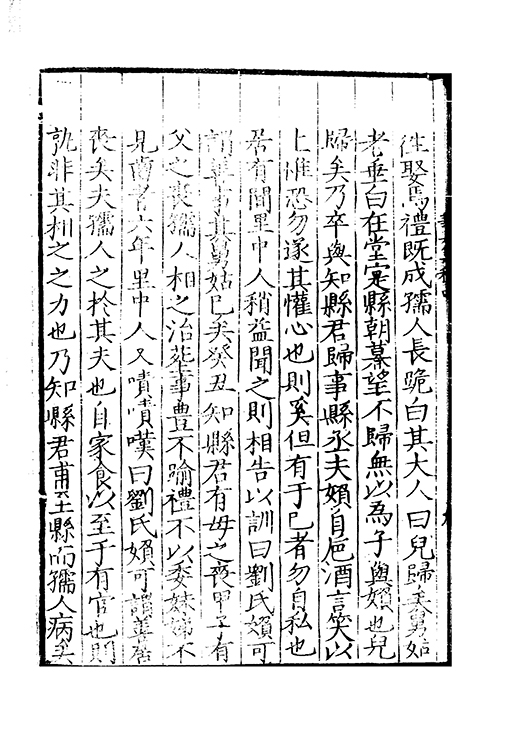 往娶焉禮既成孺人長跪白其大人曰兒歸矣舅姑
老垂白在堂寔縣朝暮望不歸無以為子與媍也兒
歸矣乃卒與知縣君歸事縣丞夫媍自巵酒言笑以
上惟恐勿遂其懽心也則奚但有于已者勿自私也
居有間里中人稍益聞之則相告以訓曰劉氏媍可
謂善事其舅姑已矣癸丑知縣君有母之喪甲子有
父之喪孺人相之治塟事豊不踰禮不以委妹娣不
見齒者六年里中人又嘖嘖嘆曰劉氏媍可謂善居
喪矣夫孺人之於其夫也自家食以至于有官也則
孰非其相之之力也乃知縣君甫至縣而孺人病矣